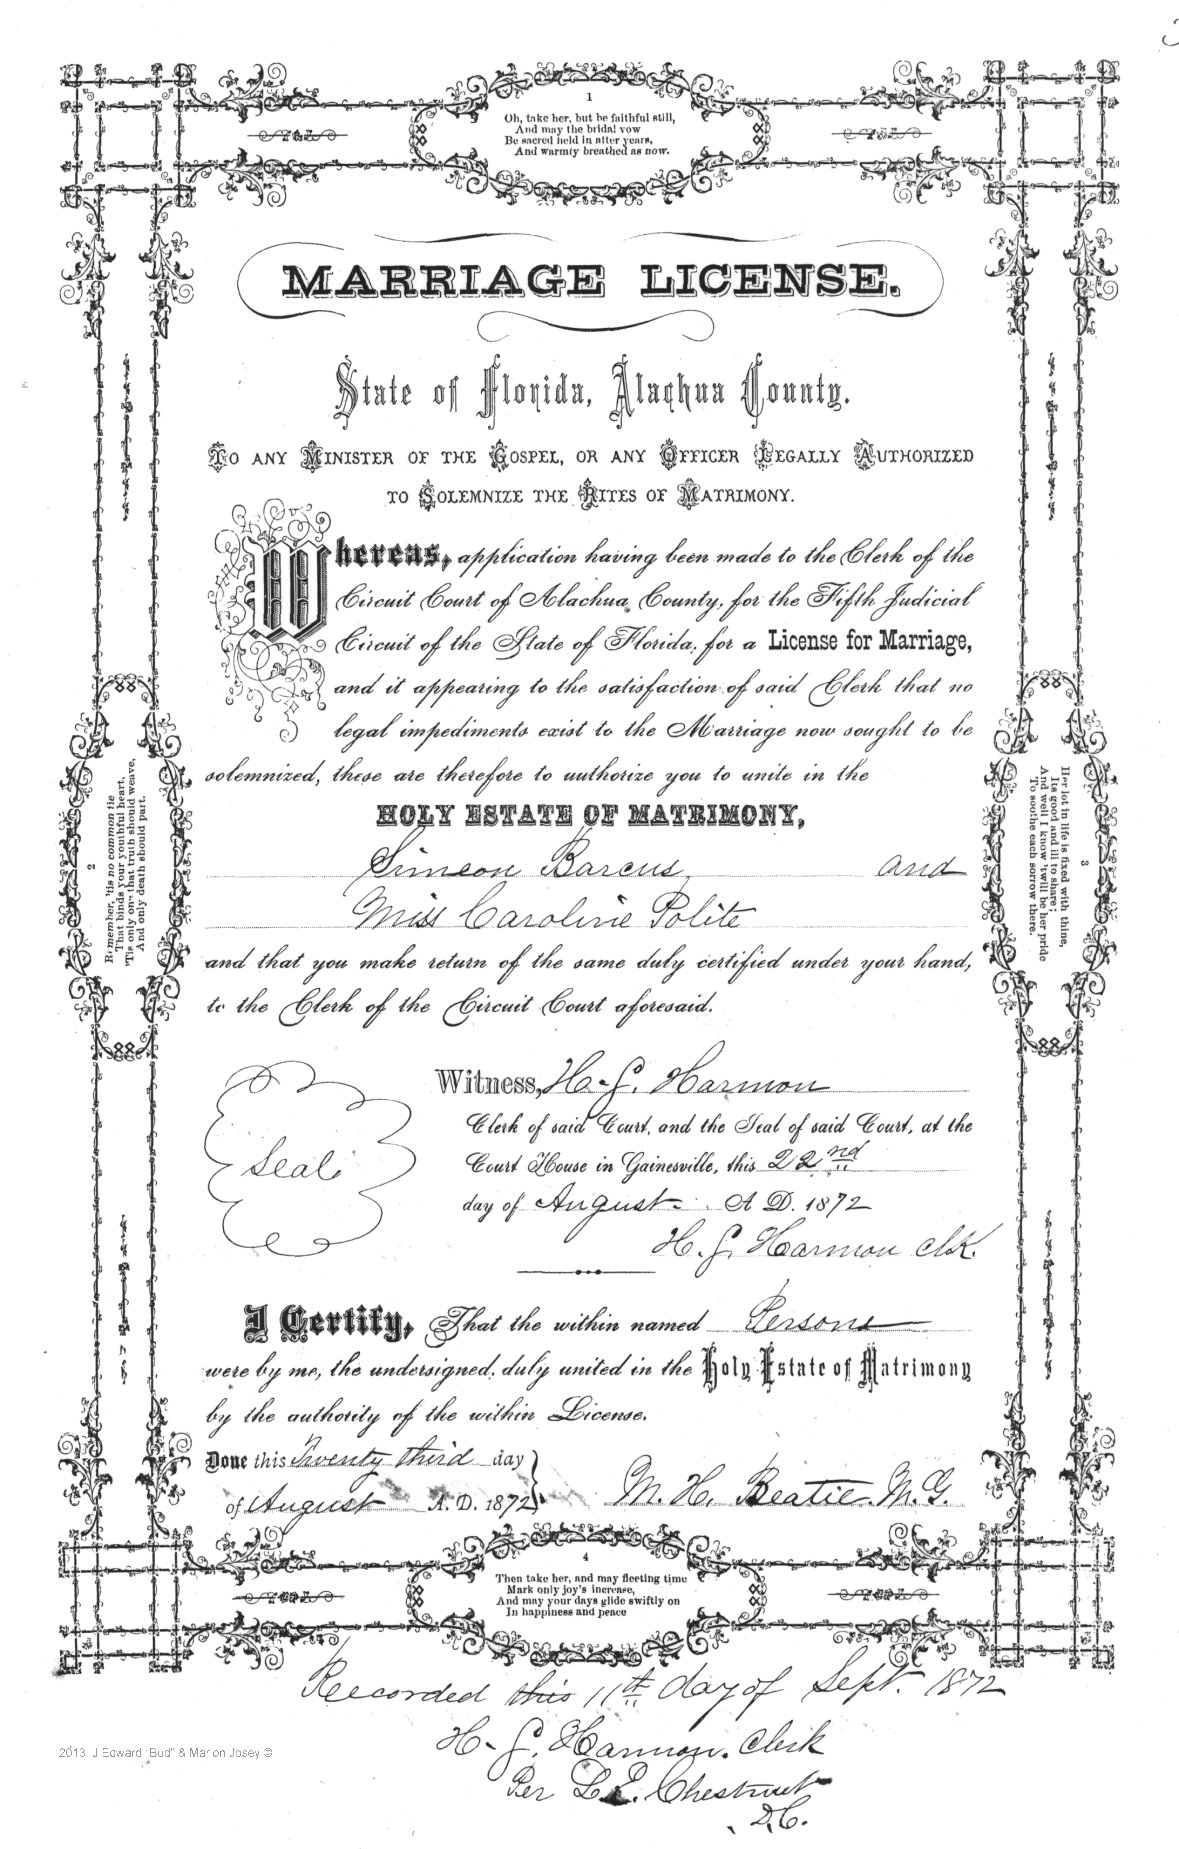 1
Oh, take her, but be faithful still,
And may the bridal vow
Be sacred held in after years,
And warmly breathed as now.
MARRIAGE LICENSE.
State of Florida, Alachua County.
To any Minister of the Gospel, or any Officer Legally Authorized
to Solemnize the Rites of Matrimony.
Whereas, application having been made to the Clerk of the
Circuit Court of Alachua County, for the Fifth Judicial
Circuit of the State of Florida, for a License for Marriage,
and it appearing to the satisfaction of said Clerk that no
legal impediments exist to the Marriage now sought to be
solemnized, these are therefore to authorize you to unite in the
HOLY ESTATE OF MATRIMONY,
Simeon Barcus, and
Miss Caroline Polite
and that you make return of the same duly certified under your hand,
to the Clerk of the Circuit Court aforesaid.
2
Remember, 'tis no common tie
That binds your youthful heart,
'Tis only one that truth should weave,
And only death should part.
3
Her lot in life is fixed with thine,
Its good and ill to share;
And well I know 'twill be her pride
To soothe each sorrow there.
Seal
Witness, H. G. Harmon
Clerk of said Court, and the Seal of said Court, at the
Court House in Gainesville, this 22nd
day of August. A D. 1872
H. G. Harmon Clk.
I Certify, That the within named Persons
were by me, the undersigned, duly united in the Holy Estate of Matrimony
by the authority of the within License.
Done this Twenty third day
of August A. D. 1872
M. H. Beatie. M. G.
4
Then take her, and may fleeting time
Mark only joy's increase,
And may your days glide swiftly on
In happiness and peace
Recorded this 11th day of Sept. 1872
H. G. Harmon. Clerk
Per L. E. Chestnut
D.C.
2013 J Edward "Bud" & Marion Josey ©